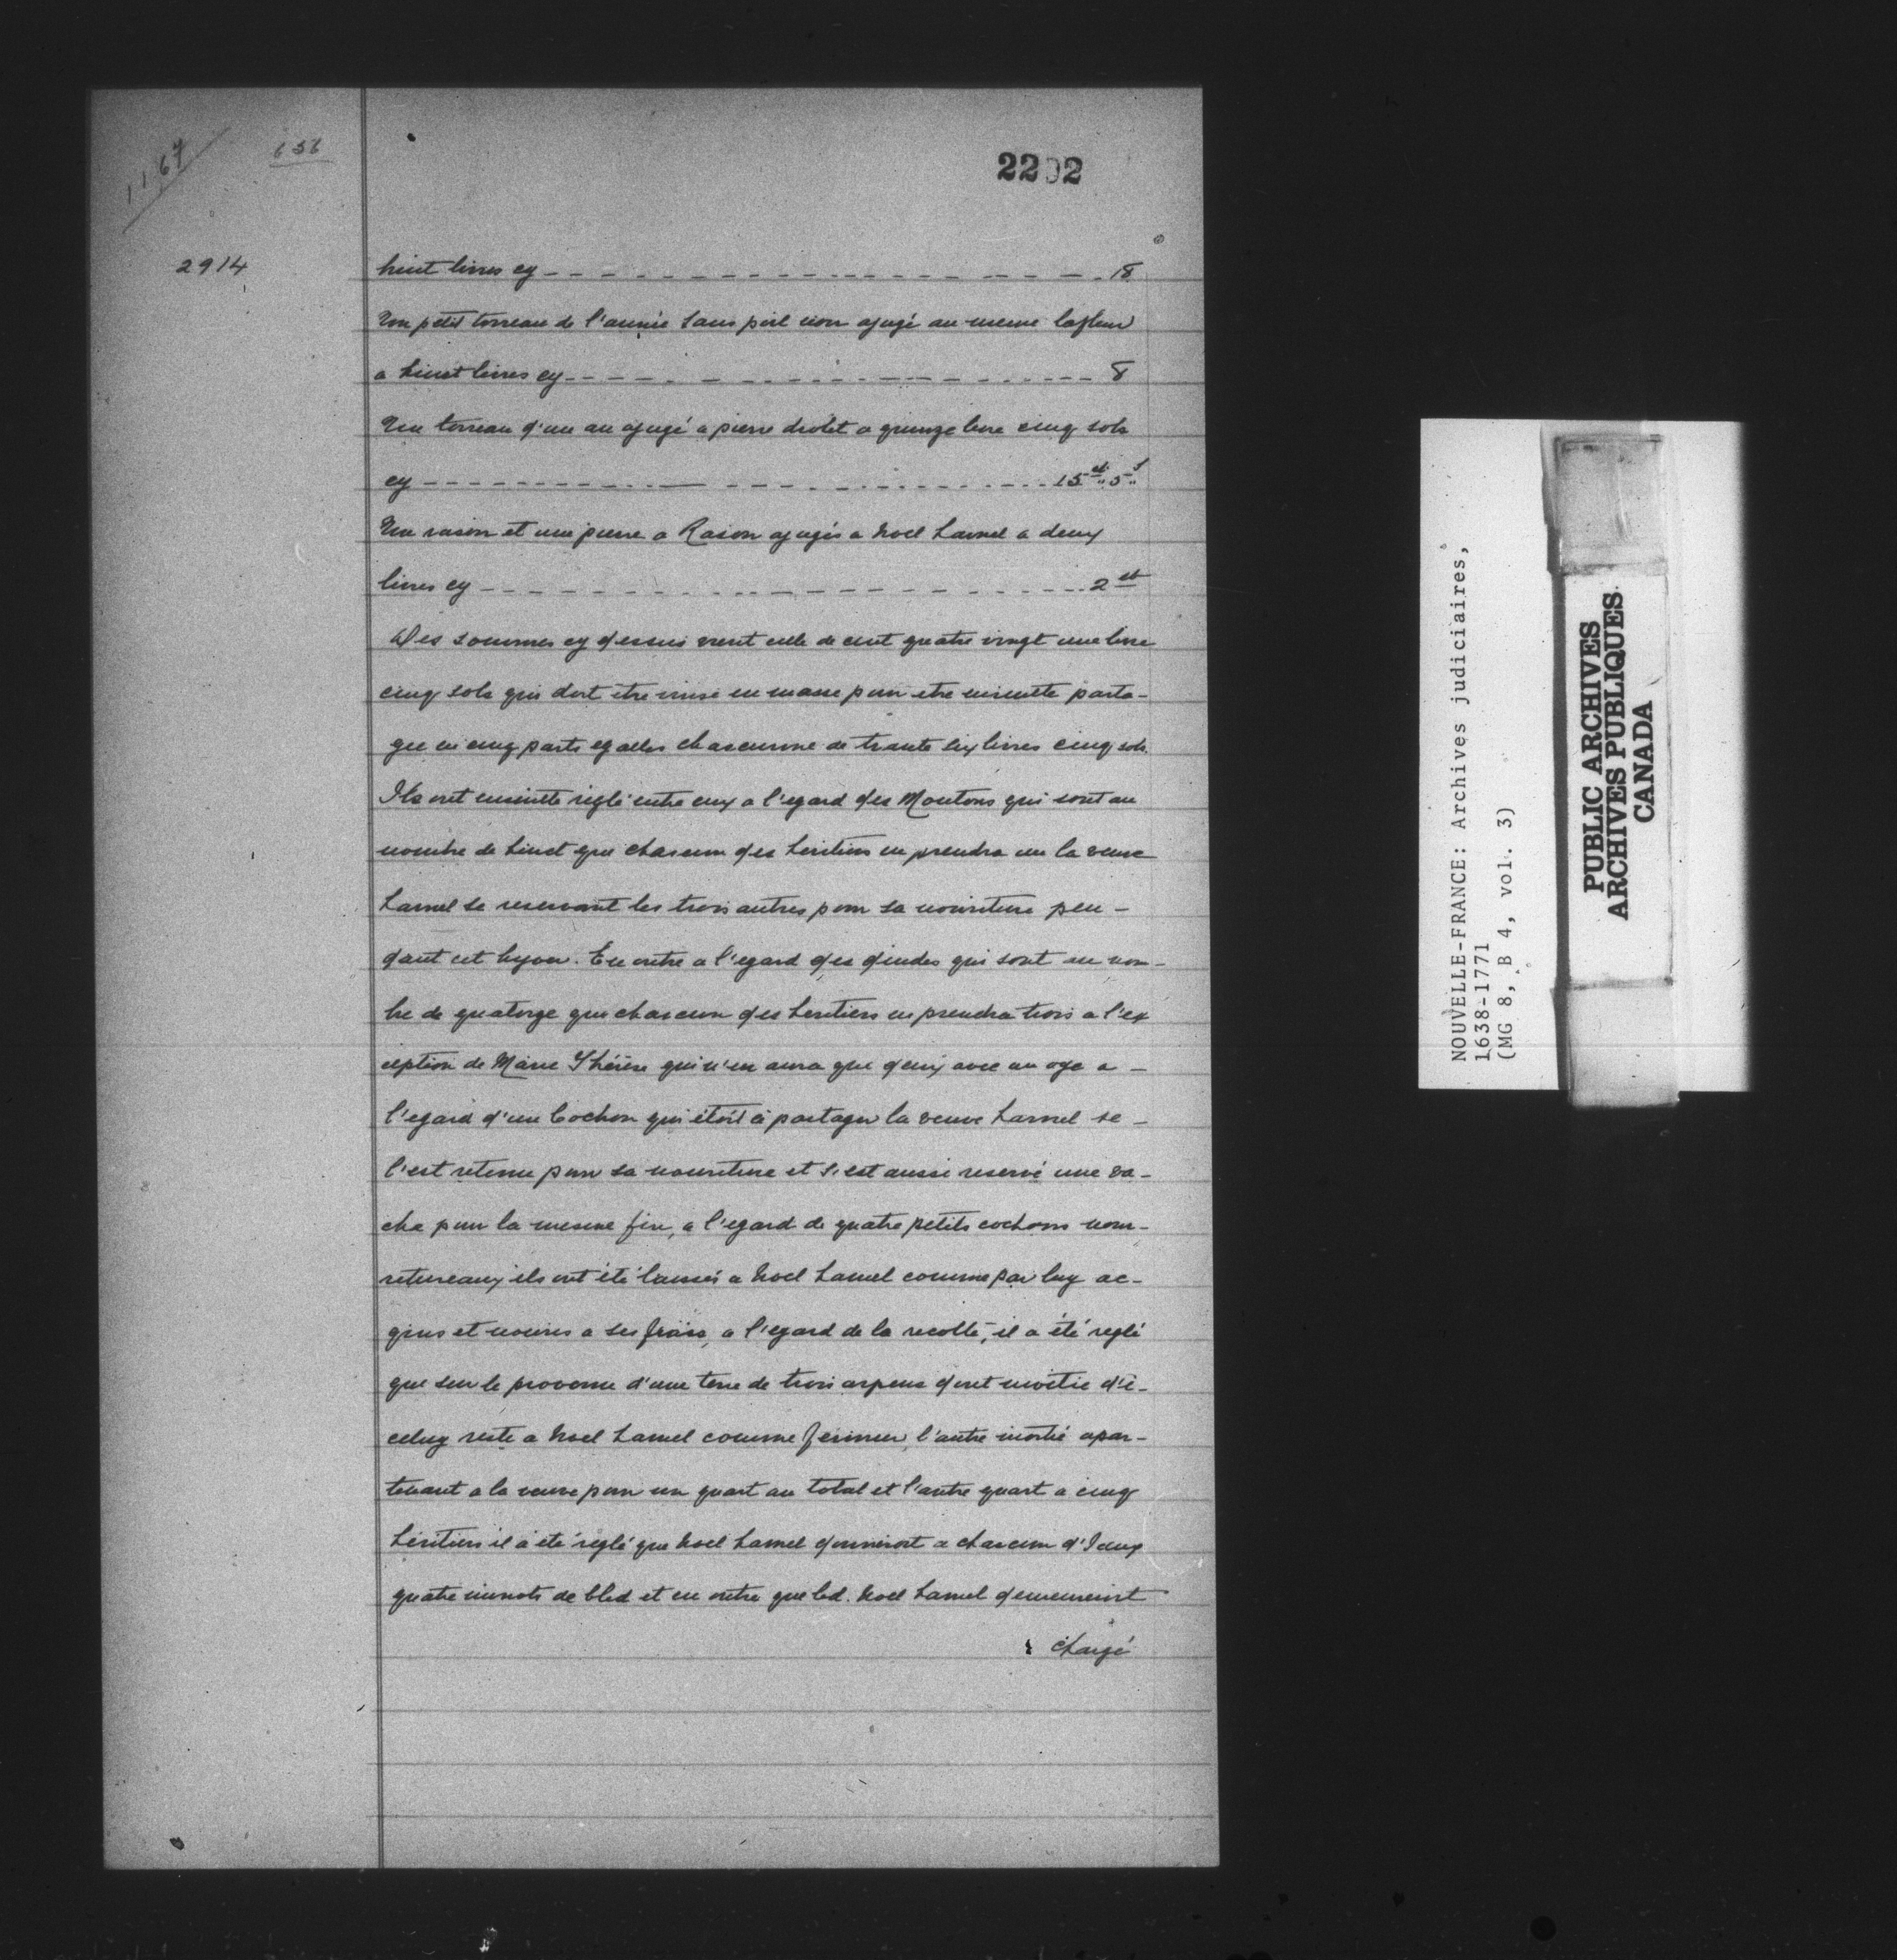 1167
656
2202
2914
huit livres cy 18
Un petit torreau de l'année sous poil noir ajugé au meme lafleur
a huict livres cy 8
Un torreau d'un an ajugé a pierre drolet a quinze livre cinq sols
cy 15ᵗᵗ 5ˢ
Un rasoir et une pierre a Rasoir ajugés a Noel hamel a deux
livres cy 2ᵗᵗ
Des sommes cy dessus vient celle de cent quatre vingt une livre
cinq sols qui doit etre mise en masse pour etre ensuitte parta-
gée en cinq parts egalles chascunne de trante six livres cinq sols.
Ils ont ensuitte réglé entre eux a l'egard des Moutons qui sont au
nombre de huict que chascun des heritiers en prendra un la veuve
hamel se reservant les trois autres pour sa nouriture pen-
dant cet hyver. En outre a l'egard des dindes qui sont au nom-
bre de quatorze que chascun des heritiers en prendra trois a l'ex
ception de Marie Thérèse qui n'en aura que deux avec un oye a -
l'egard d'un Cochon qui étoit à partager la veuve hamel se -
l'est retenu pour sa nouriture et s'est aussi reservé une va-
che pour la mesme fin, a l'egard de quatre petits cochons nour-
retureaux ils ont été laissés a Noel hamel comme par luy ac-
quis et nouris a ses frais, a l'egard de la recolte, il a été reglé
que sur le provenu d'une terre de trois arpens dont moitié d'i-
celuy reste a Noel hamel comme fermier, l'autre moitié apar-
tenant a la veuve pour un quart au total et l'autre quart a cinq
héritiers il a été réglé que Noel hamel donneroit a chascun d'Iceux
quatre minots de bled et en outre que led. Noel hamel demeureroit
chargé
NOUVELLE-FRANCE: Archives judiciaires,
1638-1771
(MG 8, B 4, vol. 3)
PUBLIC ARCHIVES
ARCHIVES PUBLIQUES
CANADA